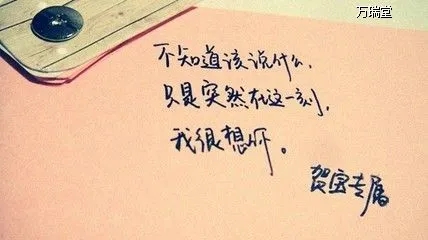 万瑞堂
不知道该说什么,
只是突然在这一刻,
我很想你。
贺宝专属